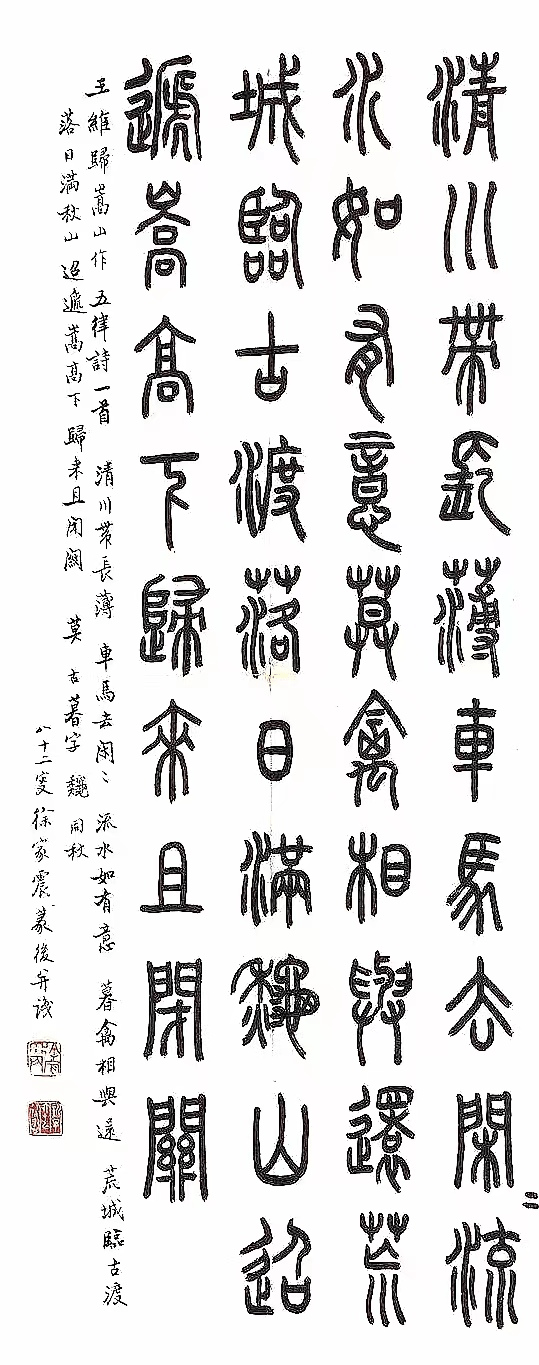 清川带長薄車馬去閑〻流
水如有意莫禽相與還荒
城臨古渡落日滿龝山迢
遞嵩高下歸來且閉關
王維歸嵩山作五律詩一首 清川带長薄 車馬去閑〻 流水如有意 暮禽相與還 荒城臨古渡
落日满秋山 迢遞嵩高下 歸来且闭關 莫古暮字 龝同秋
八十二叟徐家震篆後并识